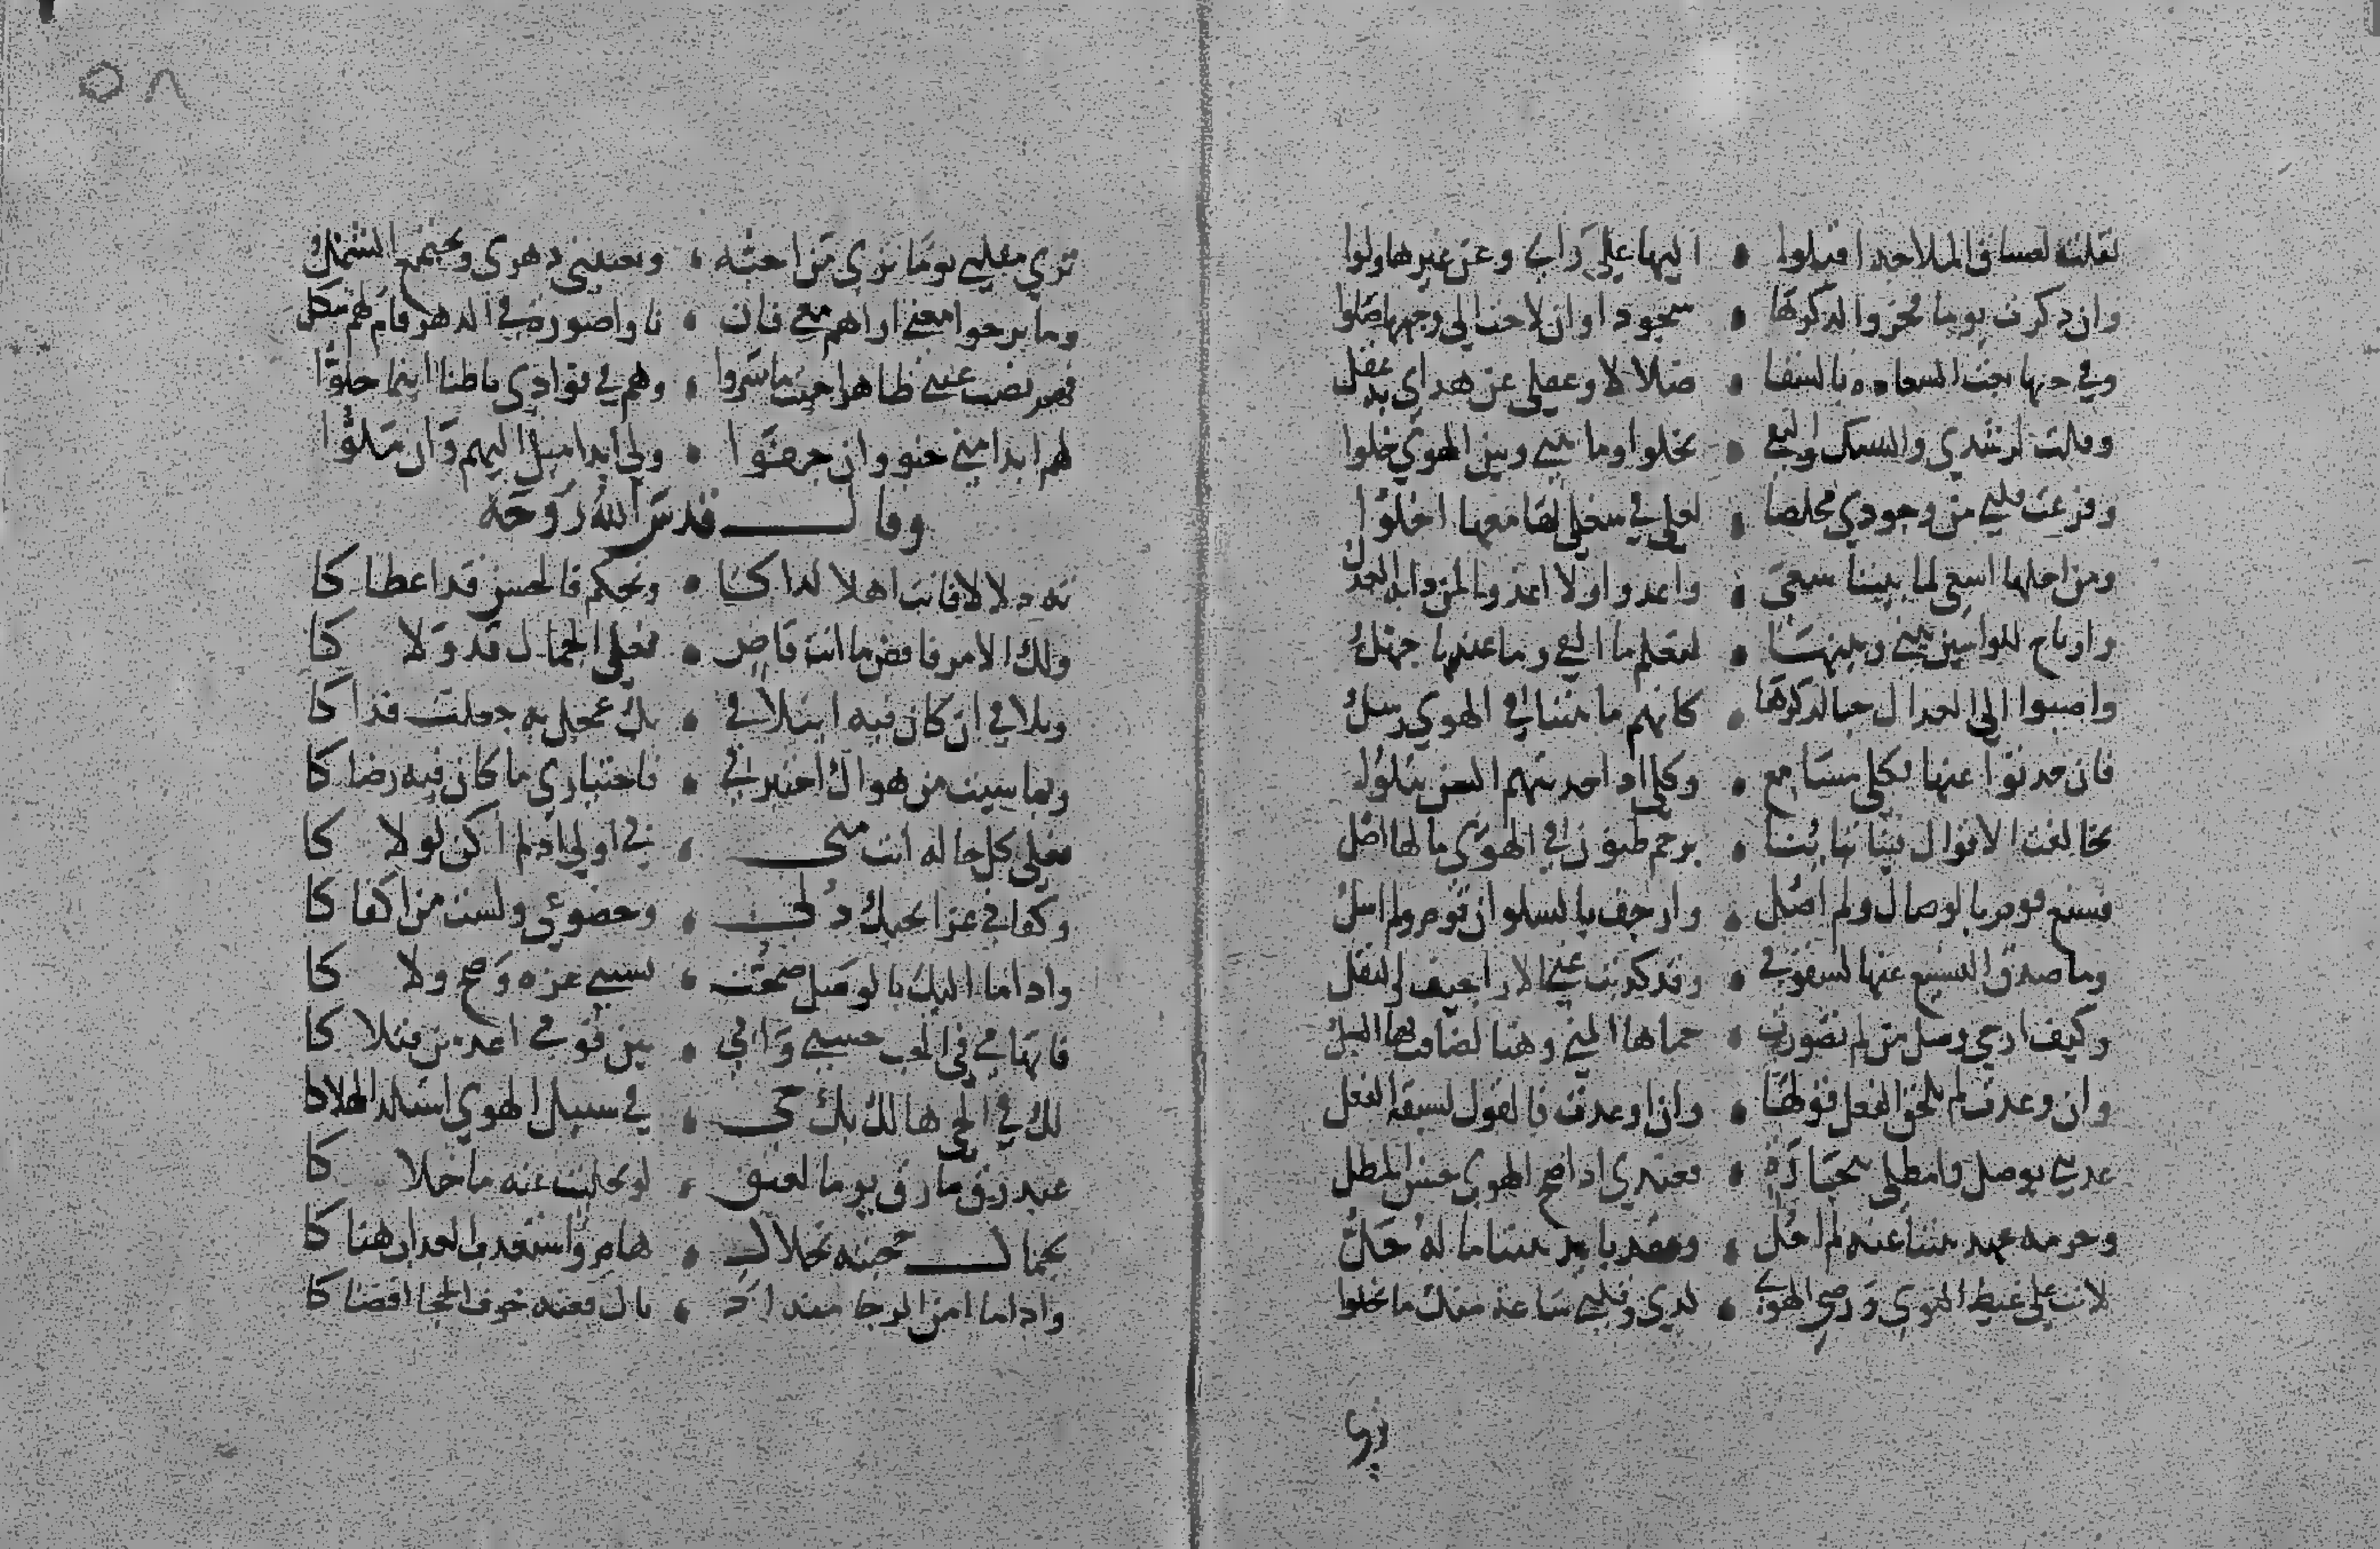 فقلت لعشاق الملاحه اقبلوا • اليها على رايي وعن غيرها ولوا
وان ذكرت يوما فخروا لذكرها • سجودا وان لاحت الى وجهها صلوا
وفي حبها بعت السعاده بالشقا • ضلالا وعقلي عن هداي به عقل
وقلت لرشدي والتنسك والتقى • تخلوا وما بيني وبين الهوى خلوا
وفرغت قلبي من وجودي مخلصا • لعلي في شغلي بها معها اخلوا
ومن اجلها اسعى لمن بيننا سعى • واعدوا ولا اعدوا لمن دابه العذل
وارتاح للواشين بيني وبينها • لتعلم ما القى وما عندها جهل
واصبوا الى العذال حبا لذكرها • كانهم ما بيننا في الهوى رسل
فان حدثوا عنها فكلي مسامع • وكلي اذا حدثتهم السن تتلوا
تخالفت الاقوال فينا تباينا • برجم ظنون في الهوى ما لها اصل
فشنع قوم بالوصال ولم اصل • وارجف بالسلوان قوم ولم اسل
وما صدق التشنيع عنها لشقوتي • وقد كذبت عني الاراجيف والنقل
وكيف ارجي وصل من لو تصورت • حماها المنى وهما لضاقت بها السبل
وان وعدت لم يلحق الفعل قولها • وان اوعدت فالقول يسبقه الفعل
عديني بوصل وامطلي بنجازه • فعندي اذا صح الهوى حسن المطل
وحرمة عهد بيننا عنه لم احل • وعقد بايد بيننا ما له حل
لانت على غيظ النوى ورضى الهوى • لدي وقلبي ساعة منك ما يخلوا
ترى
ترى مقلتي يوما ترى من احبه • ويعتبني دهري ويجتمع الشمل
وما برحوا معنى اراهم معي فان • ناوا صورة في الدهر قام لهم شكل
فهم نصب عيني ظاهرا حيث ما سروا • وهم في فوادي باطنا اينما حلوا
لهم ابدا مني حنو وان جفوا • ولي ابدا ميل اليهم وان ملوا
وقال قدس الله روحه
ته دلالا فانت اهلا لذاكا • وتحكم فالحسن قد اعطاكا
ولك الامر فاقض ما انت قاض • فعلي الجمال قد ولاكا
وتلافي ان كان فيه ايتلافي • بك عجل به جعلت فداكا
وبما شيت من هواك اختبرني • فاختياري ما كان فيه رضاكا
فعلى كل حالة انت مني • بي اولى اذ لم اكن لولاكا
وكفاني عزا بحبك ذلي • وخضوعي ولست من اكفاكا
واذا ما اليك بالوصل عزت • نسبتي عزه وصح ولاكا
فاتهامي في الحب حسبي واني • بين قومي اعد من قتلاكا
لك في الحي هالك بك حي • في سبيل الهوى استلذ الهلاكا
عبد رق ما رق يوما لعتق • لو تخليت عنه ما خلاكا
بجمال حجبته بجلال • هام واستعذب العذاب هناكا
واذا ما امن الرجا منه اد • ناك فعنه خوف الحجا اقصاكا
٥٨